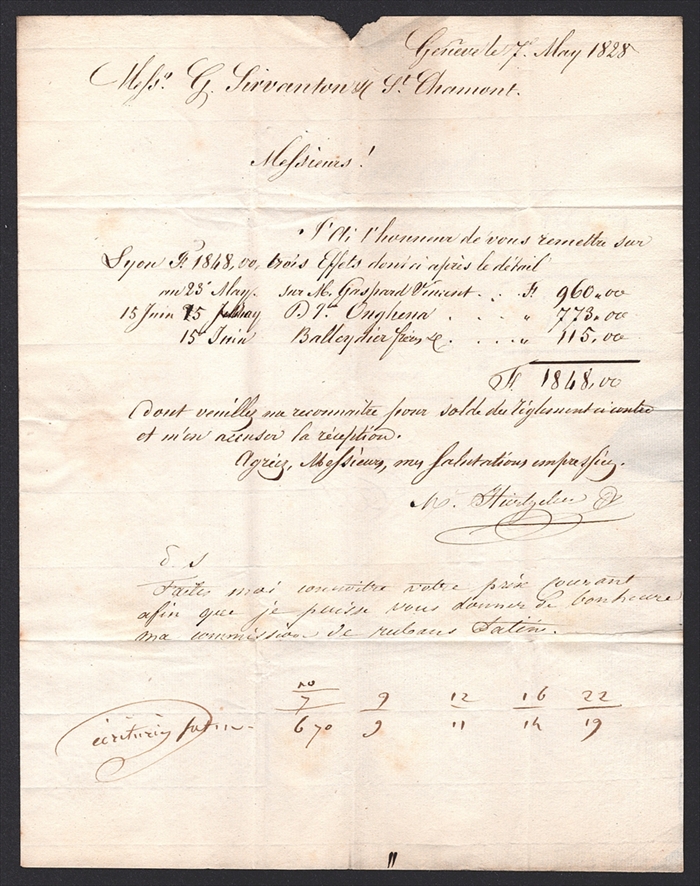 Genève le 7. May 1828
Mess.rs G. Sirvanton & St. Chamont.
Messieurs!
J'ai l'honneur de vous remettre sur
Lyon F. 1848,00, trois Effets dont ci après le détail
au 23 May. sur M. Gaspard Vincent . . F. 960,00
15 Juin 15 D.o Onghena . . " 773,00
15 Juin Balleydier frères & . . " 115,00
F. 1848,00
dont veuillez me reconnaitre pour solde de règlement ci contre
et m'en accuser la réception.
Agréez, Messieurs, mes salutations empressées.
P. S
Faites moi connoître votre prix courant
afin que je puisse vous donner de bonheure
ma commission de rubans Satin.
10
7 9 12 16 22
6 70 9 11 14 19
satin